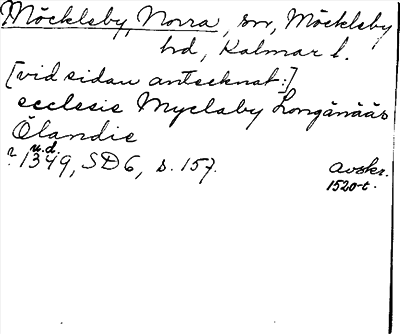 Möckleby, Norra, sn, Möckleby
hd, Kalmar l.
[vid sidan antecknat:]
ecclesie Myclaby Longänääs
Ölandie
? u.d. 1349, SD6, s. 157. Avskr.
1520-t.